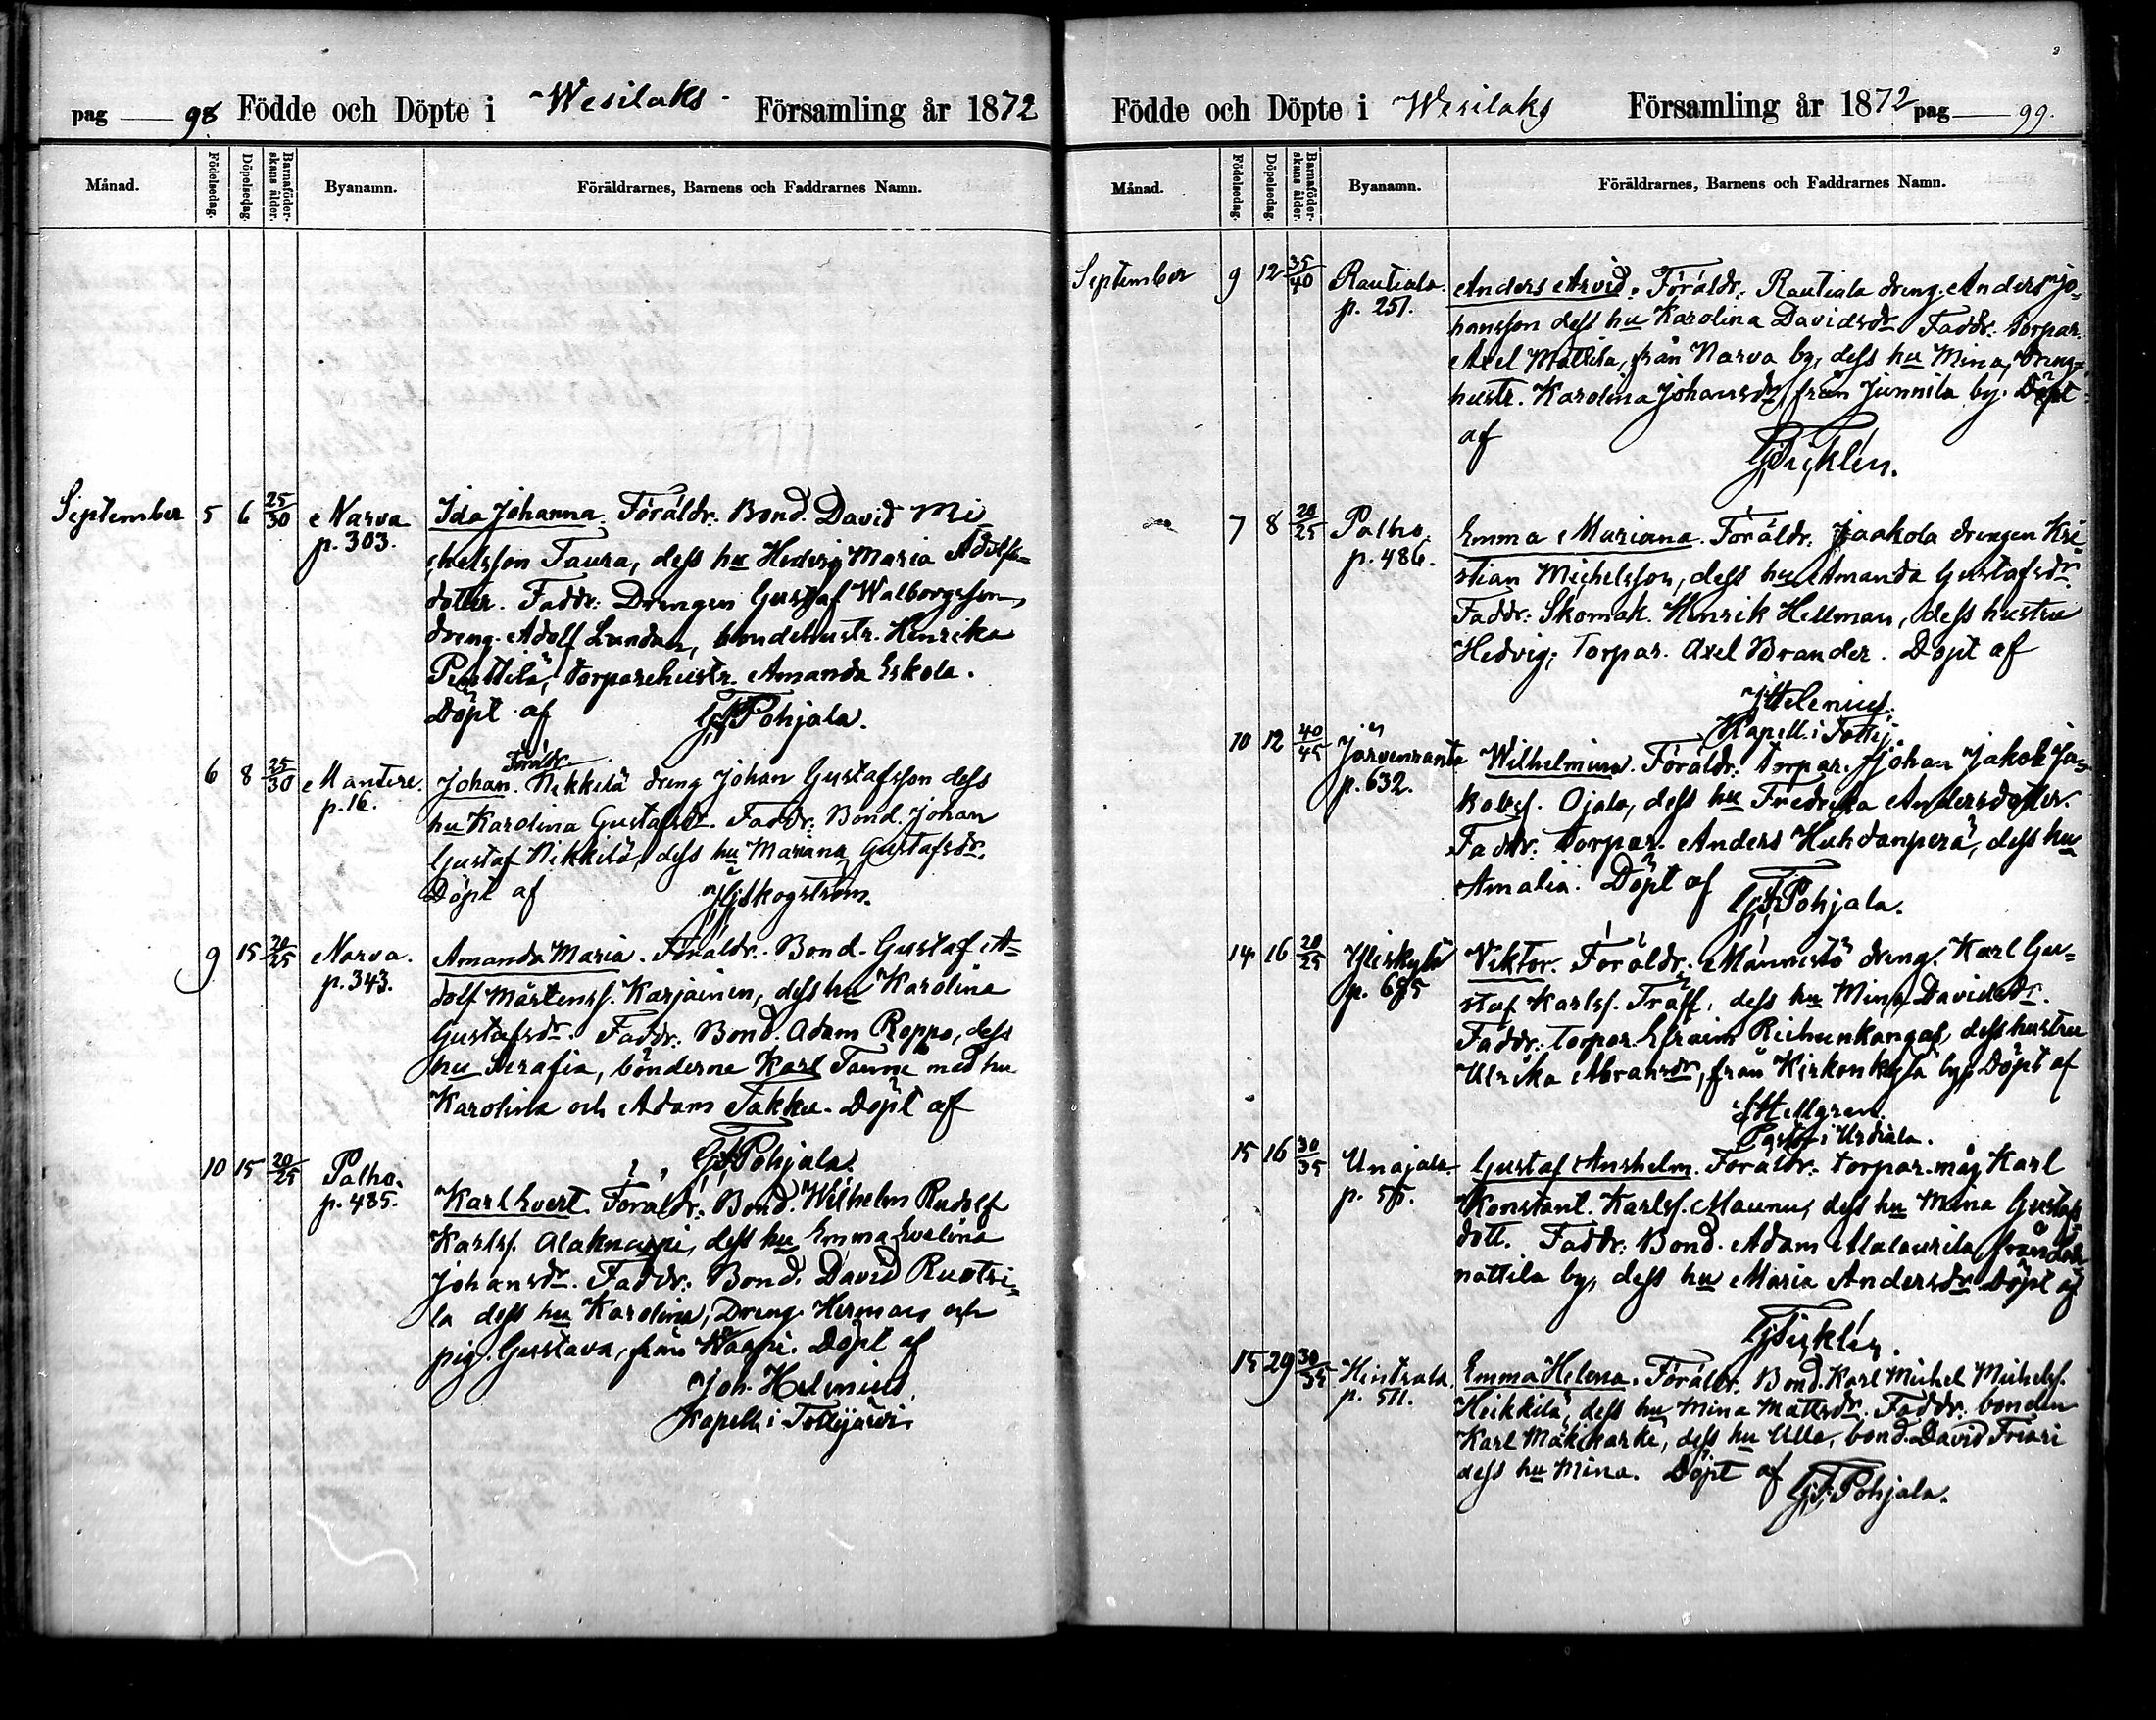 pag 98 Födde och Döpte i Wesilaks Församling år 1872
Månad. Födelsedag. Döpelsedag. Barnaföderskans ålder. Byanamn. Föräldrarnes, Barnens och Faddrarnes Namn.
September 5 6 25/30 Narva p. 303.
Ida Johanna. Föräldr. Bond. David Mi-
chelsson Taura, dess hu Hedvig Maria Adolfs-
dotter. Faddr: Drengen Gustaf Walborgsson,
dreng. Adolf Lundan, bondehustr. Henrika
Penttilä, torparehustr. Amanda Eskola.
Döpt af G.F. Pohjala.
6 8 25/30 Mantere. p. 16.
Föräldr.
Johan. Nikkilä dreng Johan Gustafsson dess
hu Karolina Gustafsdr. Faddr: Bond. Johan
Gustaf Nikkilä, dess hu Mariana Gustafsdr.
Döpt af Skogström.
9 15 20/25 Narva. p. 343.
Amanda Maria. Föräldr. Bond. Gustaf A-
dolf Mårtenss. Karjainen, dess hu Karolina
Gustafsdr. Faddr: Bond. Adam Roppo, dess
hu Serafia, bönderne Karl Taune med hu
Karolina och Adam Takku. Döpt af
G.F. Pohjala.
10 15 20/25 Palho. p. 485.
Karl Evert. Föräldr: Bond. Wilhelm Rudolf
Karlss. Alaknaapi, dess hu Emma Evelina
Johansdr. Faddr: Bond. David Ruotsi-
la dess hu Karolina, Dreng Herman och
pig. Gustava, från Naapi. Döpt af
Joh. Helenius
Kapell. i Tottijärvi
Födde och Döpte i Wesilaks Församling år 1872 pag 99.
Månad. Födelsedag. Döpelsedag. Barnaföderskans ålder. Byanamn. Föräldrarnes, Barnens och Faddrarnes Namn.
September 9 12 35/40 Rautiala. p. 251.
Anders Arvid. Föräldr: Rautiala dreng. Anders Jo-
hansson dess hu Karolina Davidsdr. Faddr. torpar.
Axel Mattila, från Narva by, dess hu Mina, dreng-
hustr. Karolina Johansdr, från Junnila by. Döpt
af
7 8 20/25 Palho. p. 486.
Emma Mariana. Föräldr: Jaakola drengen Kri-
stian Michelsson, dess hu Amanda Gustafsdr.
Faddr: Skomak. Henrik Hellman, dess hustru
Hedvig, Torpar. Axel Brander. Döpt af
J. Helenius,
Kapell. i Tottij.
10 12 40/45 Järvenranta p. 632.
Wilhelmina. Föräldr: torpar. Johan Jakob Ja-
kobss. Ojala, dess hu Fredrika Andersdotter.
Faddr: Torpar. Anders Huhdanperä, dess hu
Amalia. Döpt af G.F. Pohjala.
14 16 20/25 Yliskylä p. 685
Viktor. Föräldr: Männistö dreng. Karl Gu-
staf Karlss. Träff, dess hu Mina Davidsdr.
Faddr: torpar. Efraim Riihunkangas, dess hustru
Ulrika Abrahsdr, från Kirkonkylä by, Döpt af
Hellgren.
Pastor i Urdiala.
15 16 30/35 Unajala p.
Gustaf Anshelm. Föräldr: torpar.måg Karl
Konstant. Karlss. Maunu, dess hu Mina Gustafs-
dott. Faddr: Bond. Adam Alalaurila, från
nattila by, dess hu Maria Andersdr. Döpt af
15 29 30/35 Hinsala p. 511.
Emma Helena. Föräldr. Bond. Karl Michel Michelss.
Heikkilä, dess hu Mina Mattsdr. Faddr: bonden
Karl Mäkikarke, dess hu Ulla, bond. David Friari
dess hu Mina. Döpt af G.F. Pohjala.